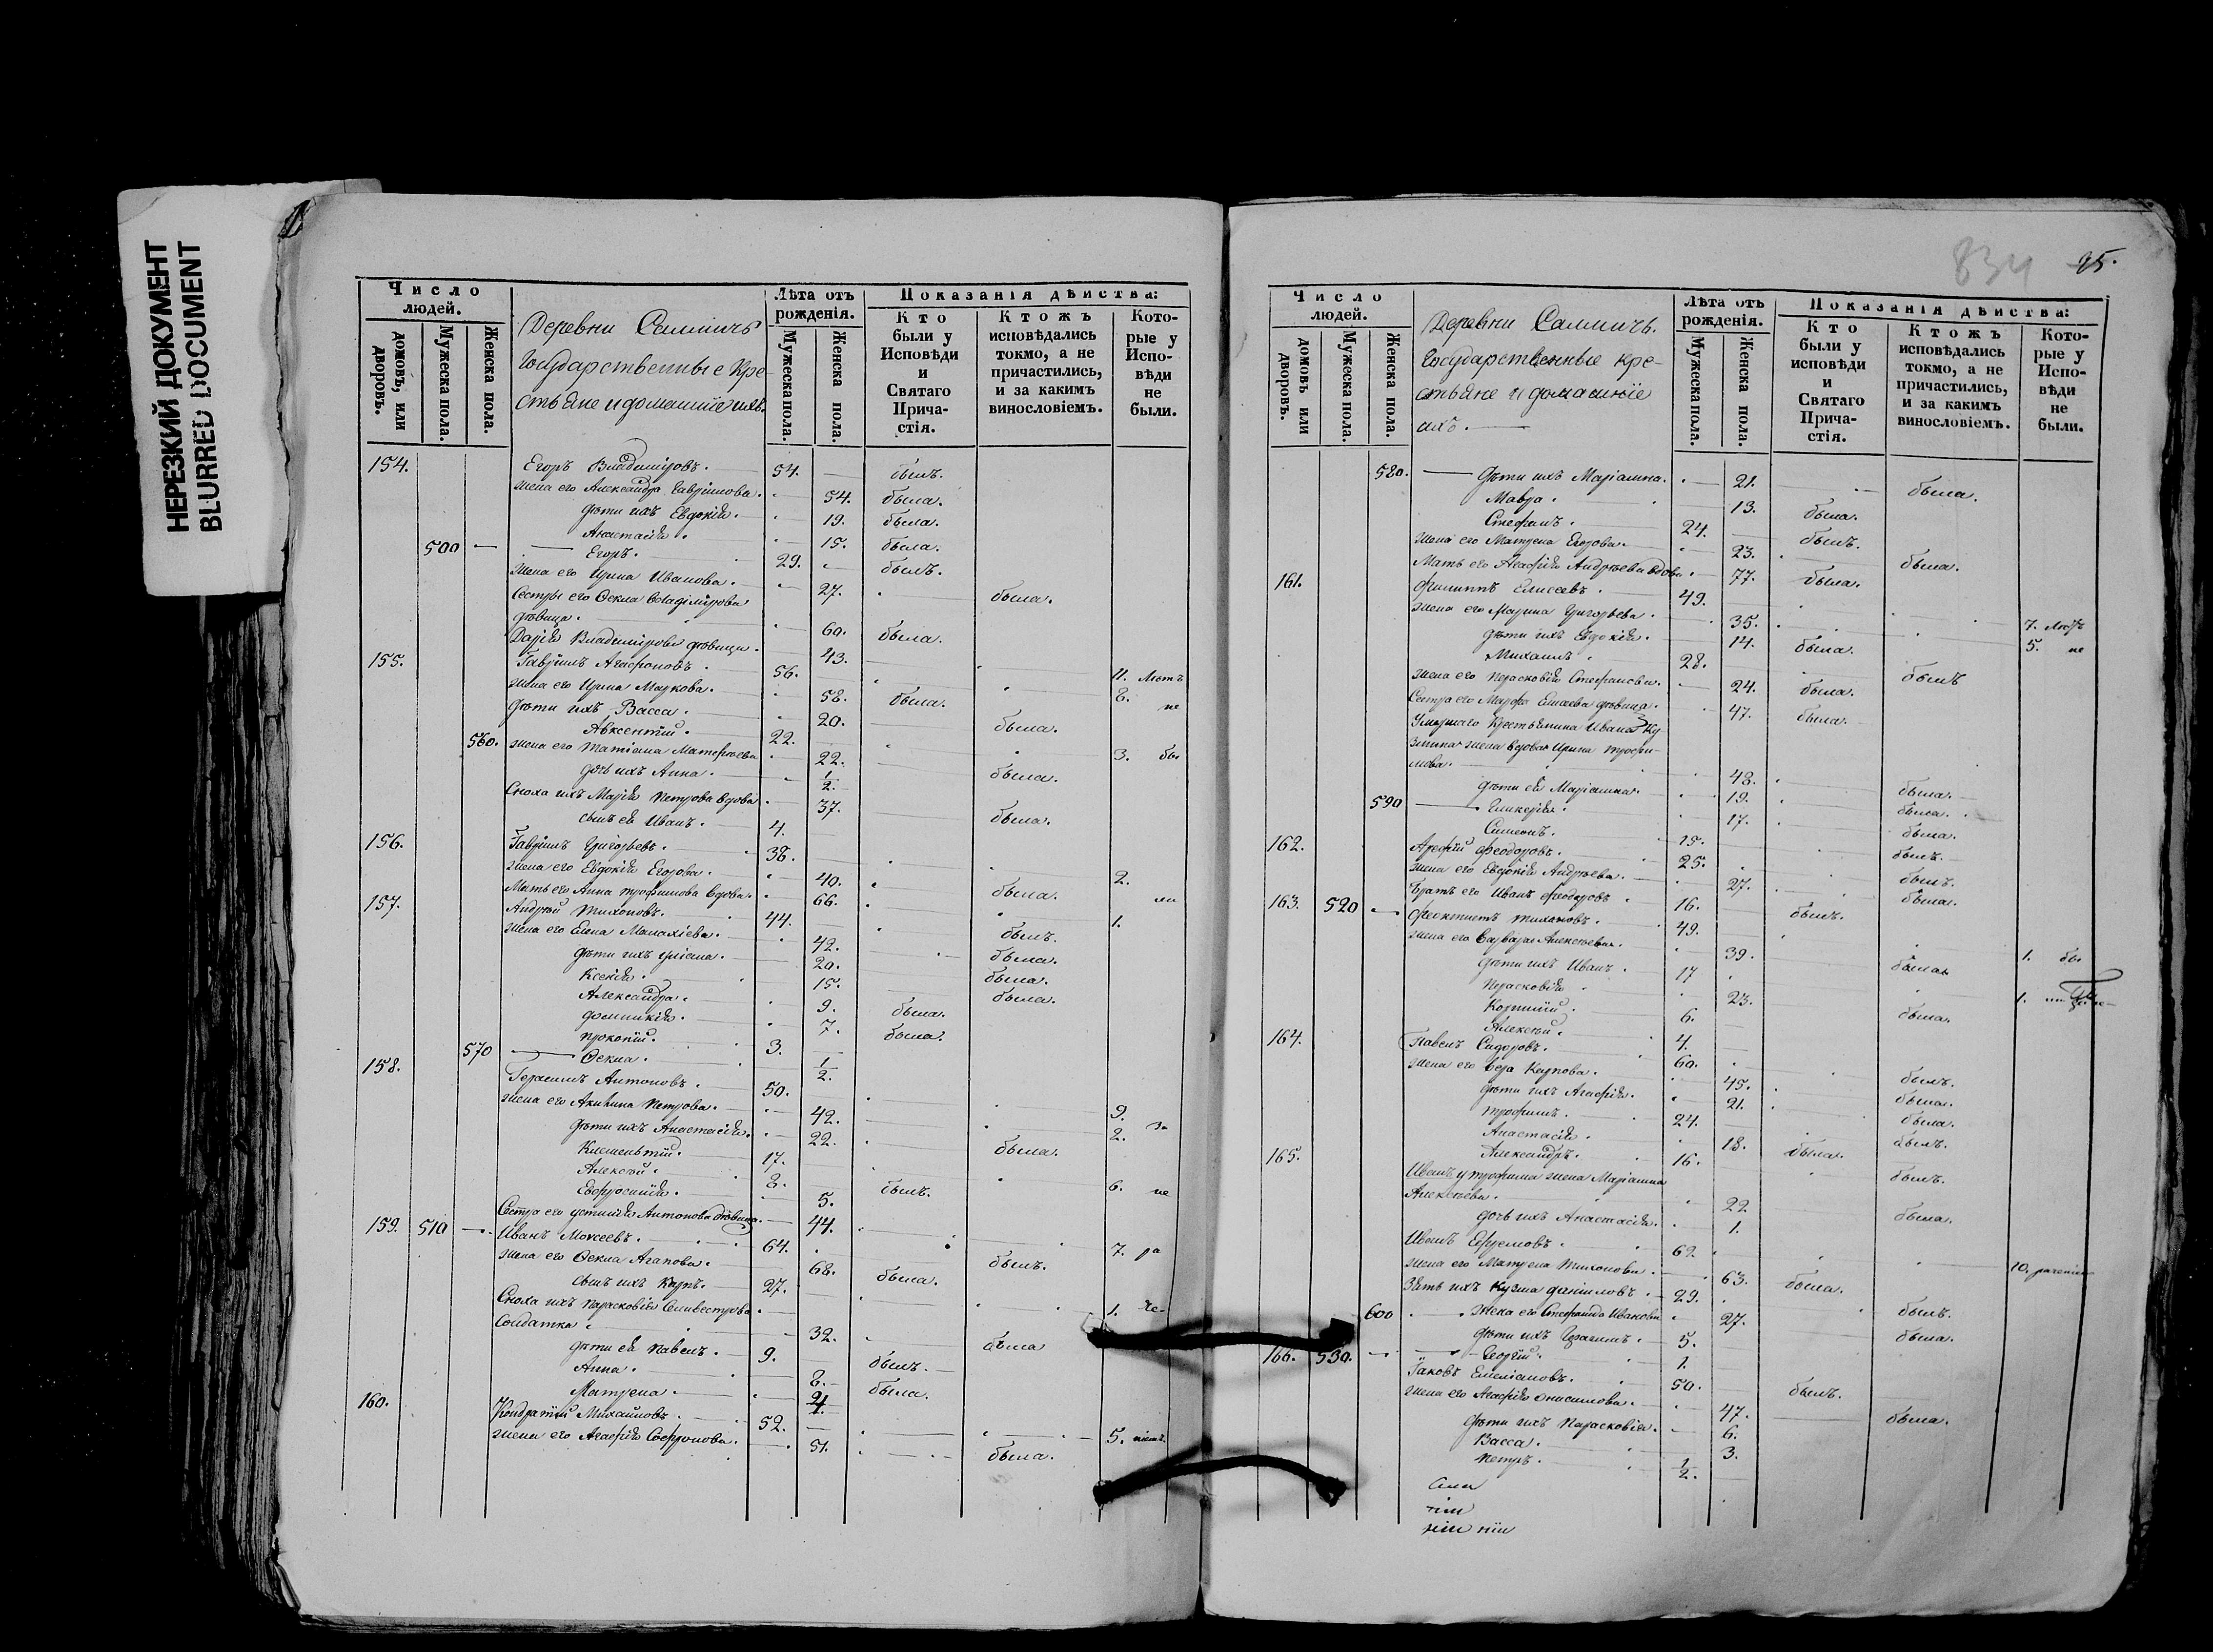 НЕРЕЗКИЙ ДОКУМЕНТ
BLURRED DOCUMENT
Число людей.
домовъ, или дворовъ.
Мужеска пола.
Женска пола.
Деревни Саммичъ
Государственные Кре-
стьяне и домашніе ихъ.
Лѣта отъ рожденія.
Мужеска пола.
Женска пола.
Показанія дѣйства:
Кто были у Исповѣди и Святаго Прича-стія.
Ктожъ исповѣдались токмо, а не причастились, и за какимъ винословіемъ.
Кото-рые у Испо-вѣди не были.
154. Егоръ Владиміровъ. 54. былъ.
жена его Александра Гавріилова. 54. была.
дѣти ихъ Евдокія. 19. была.
Анастасія. 15. была.
500 — Егоръ. 29. былъ.
жена его Ирина Иванова. 27. была.
Сестры его Ѳекла Владимірова
дѣвица. 60. была.
Дарія Владимірова дѣвица. 43.
155. Гавріилъ Агафоновъ. 56. 11. лѣтъ
жена его Ирина Маркова. 58. была. 8. не
дѣти ихъ Васса. 20. была.
Авксентій. 22.
560. жена его Татіана Матфѣева 22. 3. бы
дочь ихъ Анна. 1/2. была.
Сноха ихъ Марія Петрова вдова 37.
сынъ ея Иванъ. 4. была.
156. Гавріилъ Григорьевъ. 38.
жена его Евдокія Егорова. 40. 2.
Мать его Анна Трофимова вдова. 66. была. ли
157. Андрей Тихоновъ. 44. 1.
жена его Елена Малахіева. 42. былъ.
дѣти ихъ Уліана. 20. была.
Ксенія. 15. была.
Александра. 9. была. была.
Домникія. 7. была.
Прокопій. 3.
570 — Ѳекла. 1/2.
158. Герасимъ Антоновъ. 50.
жена его Акилина Петрова. 42. 9.
дѣти ихъ Анастасія. 22. 2. за
Климентій. 17. была.
Алексѣй. 8.
Евфросинія. 5. былъ. 6. не
Сестра его Устинія Антонова дѣвица. 44.
159. 510 — Иванъ Моѵсеевъ. 64. 7. ра
жена его Ѳекла Агапова. 68. былъ.
сынъ ихъ Карпъ. 27. была.
Сноха ихъ Парасковія Селивестрова 1. че-
Солдатка. 32. была
дѣти ея Павелъ. 9. былъ.
Анна. 8. была.
Матрена.
160. Кондратій Михайловъ. 52. 5.
жена его Агафія Софронова. 51. была.
834 95.
Число людей.
домовъ или дворовъ.
Мужеска пола.
Женска пола.
Деревни Саммичъ.
Государственные кре-
стьяне и домашніе
ихъ.
Лѣта отъ рожденія.
Мужеска пола.
Женска пола.
Показанія дѣйства:
Кто были у исповѣди и Святаго Прича-стія.
Ктожъ исповѣдались токмо, а не причастились, и за какимъ винословіемъ.
Кото-рые у Испо-вѣди не были.
580. — дѣти ихъ Маріамна. 21. была.
Мавра. 13. была.
Стефанъ. 24. былъ.
жена его Матрена Егорова. 23. была.
Мать его Агафія Андреева вдова 77. была.
161. Филиппъ Елисеевъ. 49.
жена его Марина Григорьева. 35. 7. лѣтъ
дѣти ихъ Евдокія. 14. была. 5. не
Михаилъ. 28. былъ
жена его Парасковія Стефанова. 24. была.
Сестра его Марфа Елисеева дѣвица. 47. была.
Умершаго Крестьянина Ивана Ку
зьмина жена вдова Ирина Трофи-
мова. 48. была.
дѣти ея Маріамна. 19. была.
590 — Гликерія. 17. была.
Симеонъ. 15. былъ.
162. Арефій Феодоровъ. 25. былъ.
жена его Евдокія Андреева. 27. была.
Братъ его Иванъ Феодоровъ. 16. былъ.
163. 520 — Феоктистъ Тихоновъ. 49.
жена его Варвара Алексѣева. 39. была. 1. бы
дѣти ихъ Иванъ. 17 1.
Парасковія. 23. была.
Корнилій. 6.
Алексѣй. 4.
164. Павелъ Сидоровъ. 60. былъ.
жена его Вера Карпова. 45. была.
дѣти ихъ Агафія. 21. была.
Трофимъ. 24. былъ.
Анастасія. 18. была.
Александръ. 16. былъ.
165. Иванъ у Трофима жена Маріамна
Алексѣева. 22 была.
дочь ихъ Анастасія. 1.
Иванъ Ефремовъ. 62. 10.
жена его Матрена Тихонова. 63. была.
Зять ихъ Кузма Даніиловъ. 29. былъ.
600 Жена его Стефанида Иванова 27. была.
дѣти ихъ Герасимъ. 5.
166. 530. — Георгій. 1.
Іаковъ Емеліановъ. 50. былъ.
жена его Агафія Онисимова. 47. была.
дѣти ихъ Парасковія. 6.
Васса. 3.
Петръ. 1/2.